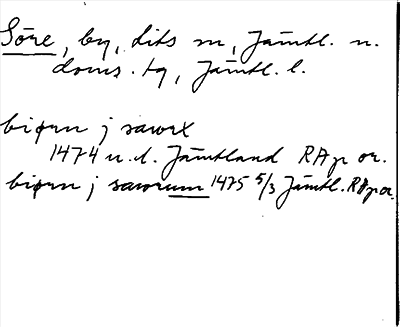 Söre, by, Lits sn, Jämtl. n.
doms. tg, Jämtl. l.
biørn j sawrx
1474 u.d. Jämtland RAp or.
biørn j sawrum 1475 5/3 Jämtl. RAp or.